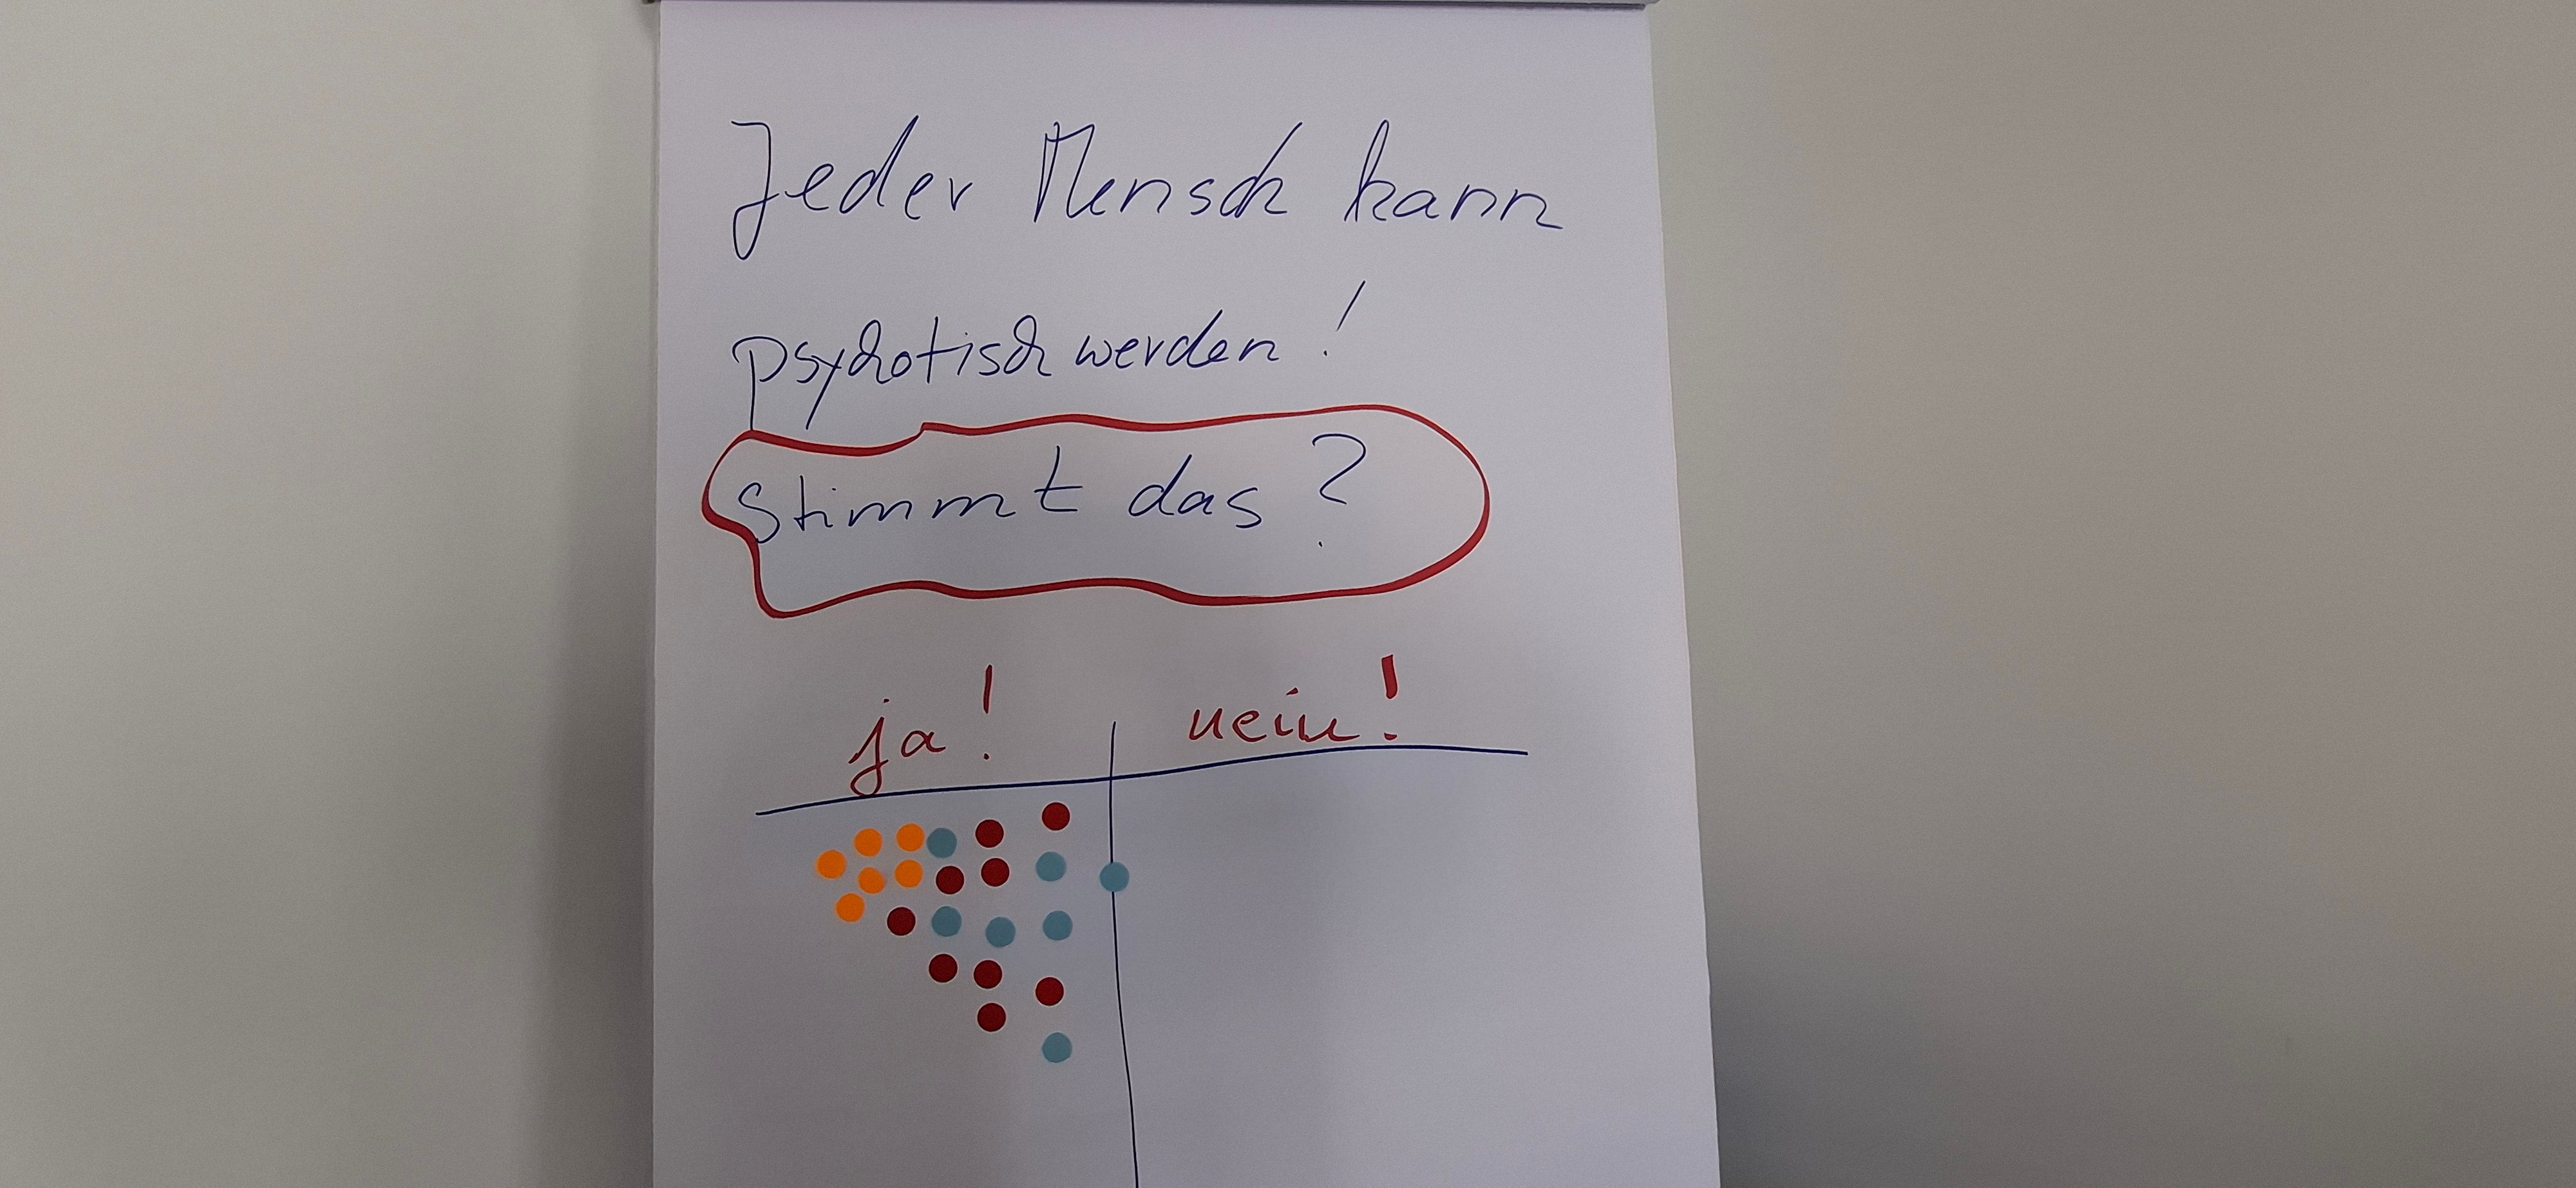 Jeder Mensch kann
psychotisch werden!
Stimmt das?
ja! nein!